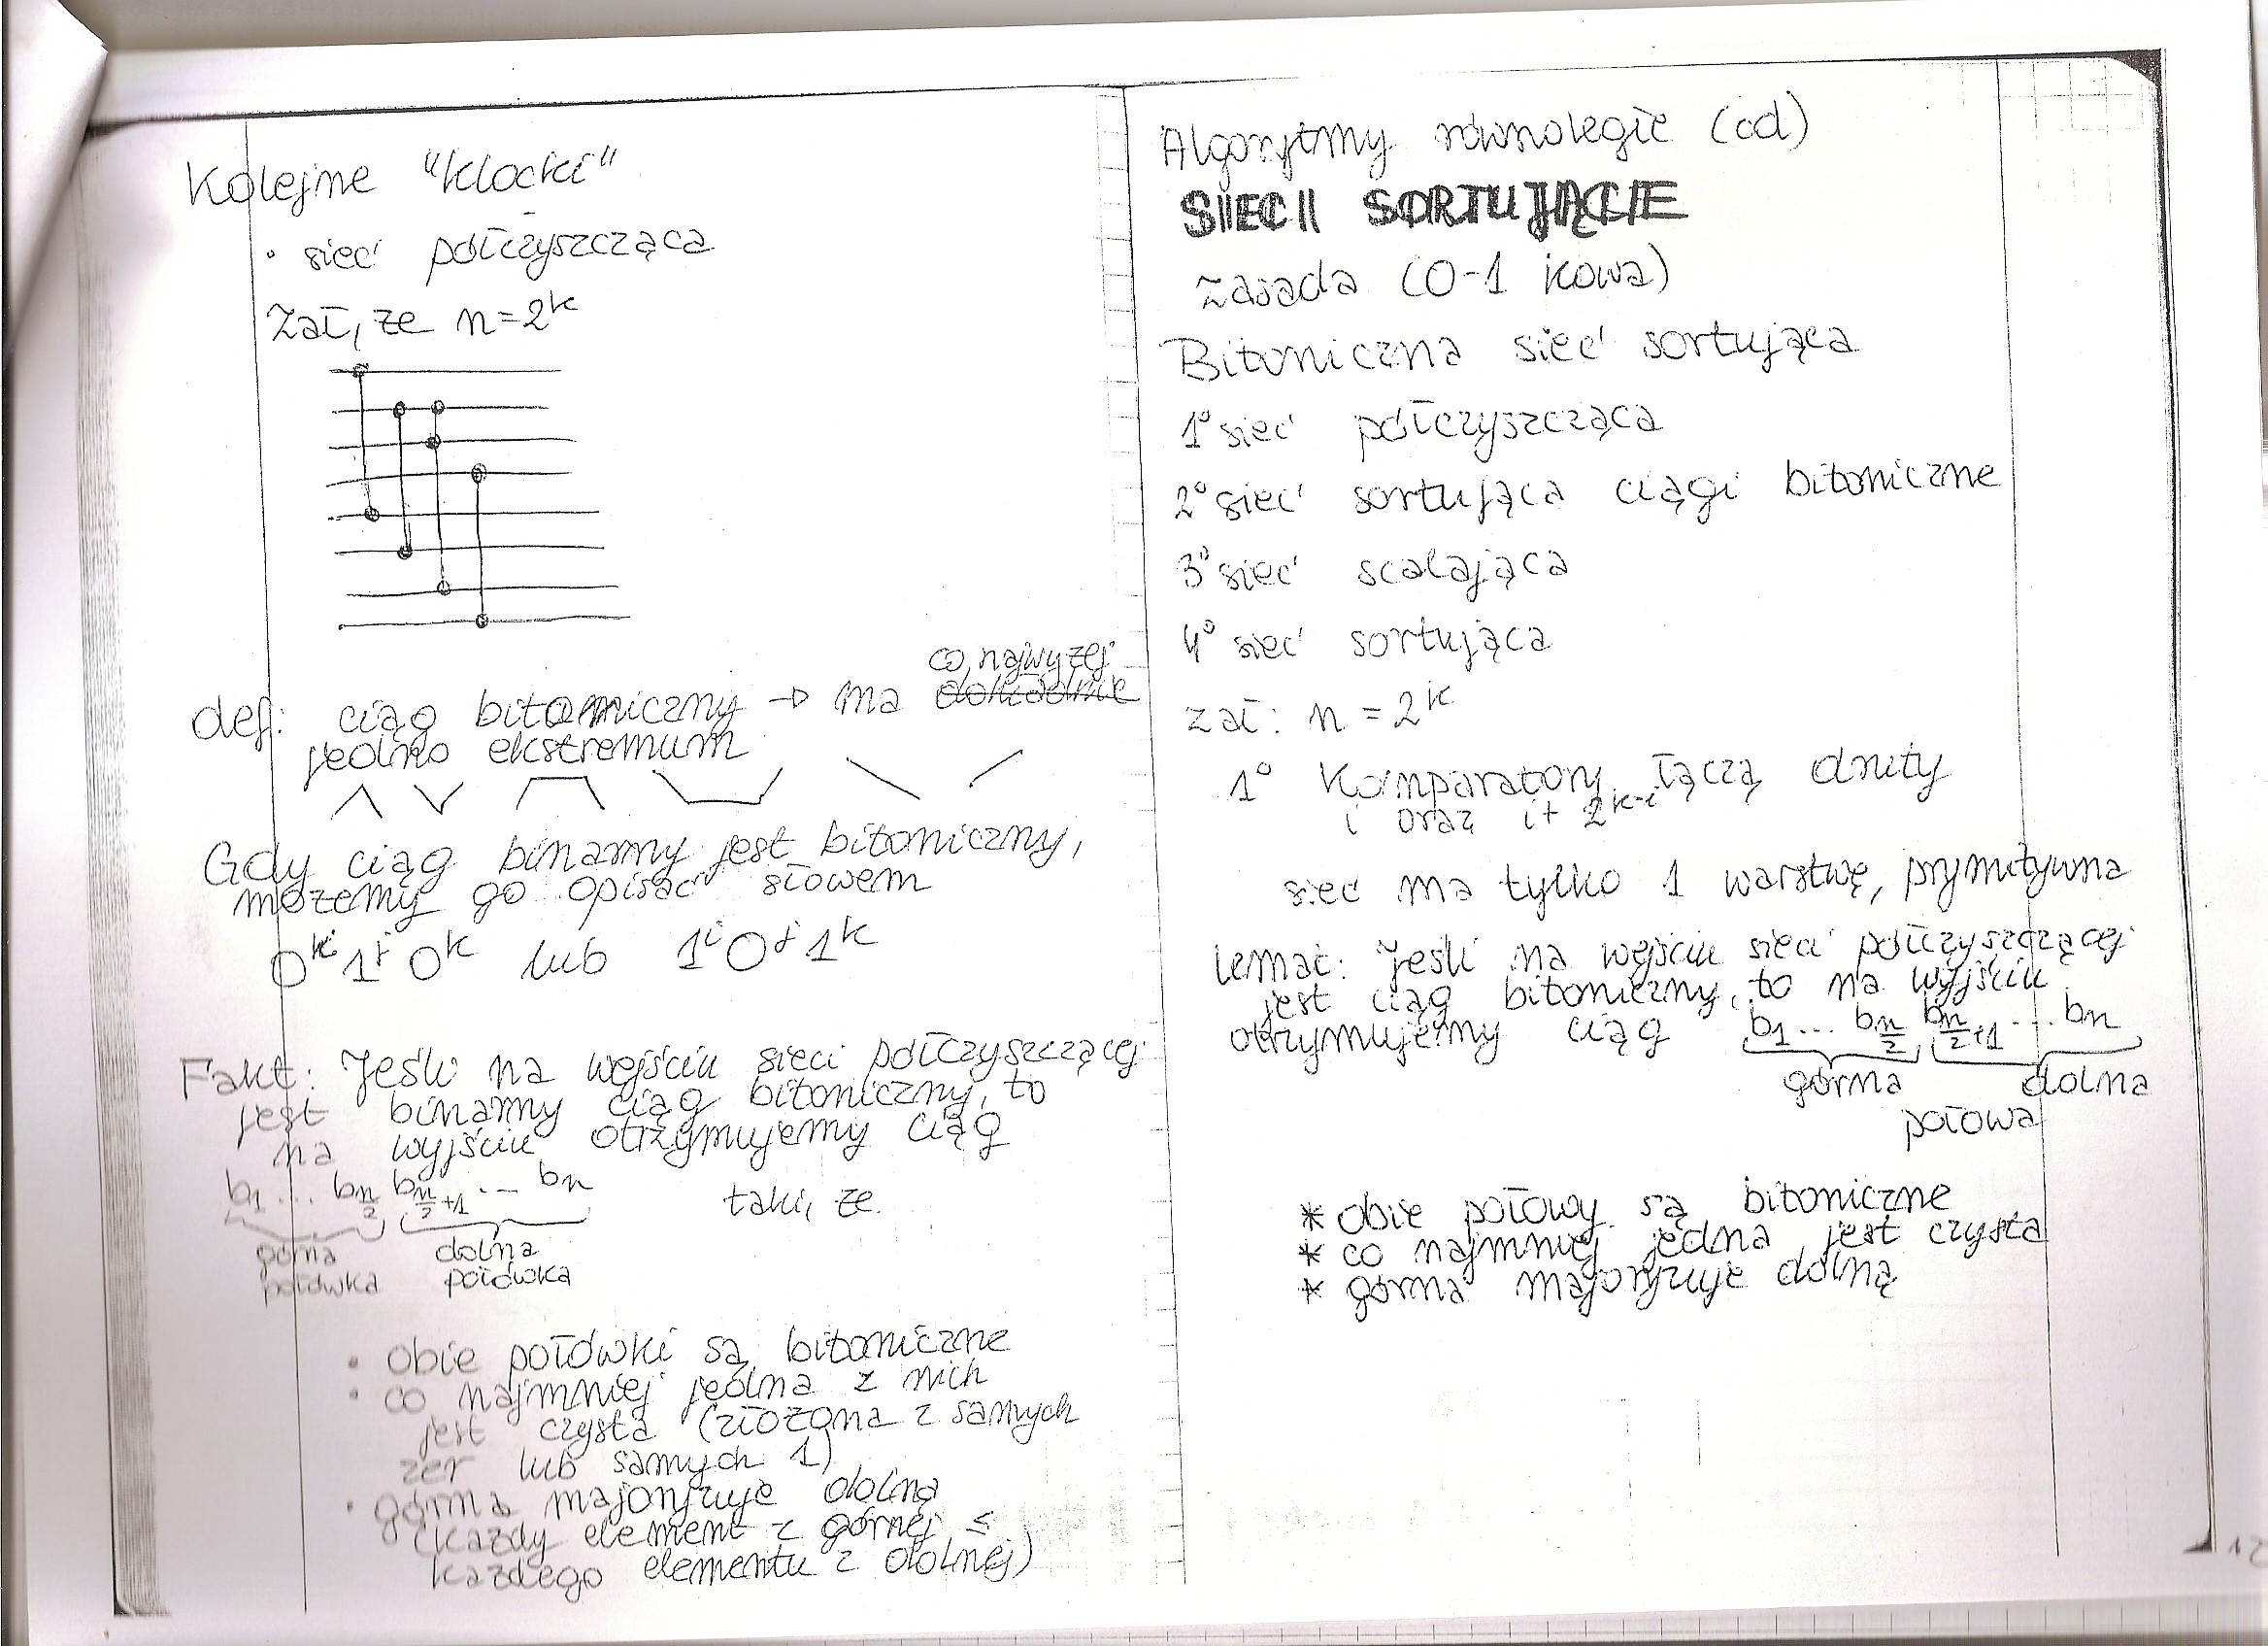 Kolejne "klocki"
• sieć półczyszcząca
Zał, że n=2^k
def: ciąg bitoniczny → ma co najwyżej dokładnie
jedno ekstremum
Gdy ciąg binarny jest bitoniczny,
możemy go opisać słowem
0^i 1^j 0^k lub 1^i 0^j 1^k
Fakt: Jeśli na wejściu sieci półczyszczącej
jest binarny ciąg bitoniczny, to
na wyjściu otrzymujemy ciąg
b_1 ... b_{n/2} b_{n/2+1} ... b_n taki, że
górna połówka dolna połówka
• obie połówki są bitoniczne
• co najmniej jedna z nich
jest czysta (złożona z samych
zer lub samych 1)
• górna majoryzuje dolną
(każdy element z górnej ≤
każdego elementu z dolnej)
Algorytmy równoległe (cd)
SIECI SORTUJĄCE
Zasada (0-1 kowa)
Bitoniczna sieć sortująca
1° sieć półczyszcząca
2° sieć sortująca ciągi bitoniczne
3° sieć scalająca
4° sieć sortująca
zał: n = 2^k
1° Komparatory łączą druty
i oraz i + 2^{k-i}
sieć ma tylko 1 warstwę, prymitywna
Lemat: Jeśli na wejściu sieci półczyszczącej
jest ciąg bitoniczny, to na wyjściu
otrzymujemy ciąg b_1 ... b_{n/2} b_{n/2+1} ... b_n
górna dolna
połowa
* obie połowy są bitoniczne
* co najmniej jedna jest czysta
* górna majoryzuje dolną